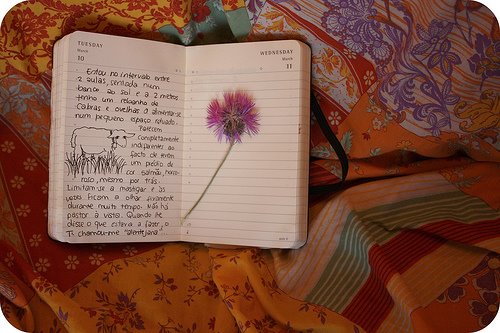 TUESDAY
March
10
Estou no intervalo entre
2 aulas, sentada num
banco ao sol e a 2 metros
tenho um rebanho de
Cabras e ovelhas a alimentar-se
num pequeno espaço relvado.
Parecem
completamente
indiferentes ao
facto de terem
um prédio de
cor salmão, horro-
roso, mesmo por trás.
Limitam-se a mastigar e às
vezes ficam a olhar fixamente
durante muito tempo. Não há
pastor à vista. Quando lhe
disse o que estava a fazer, o
T. chamou-me "alentejana".
WEDNESDAY
March
11